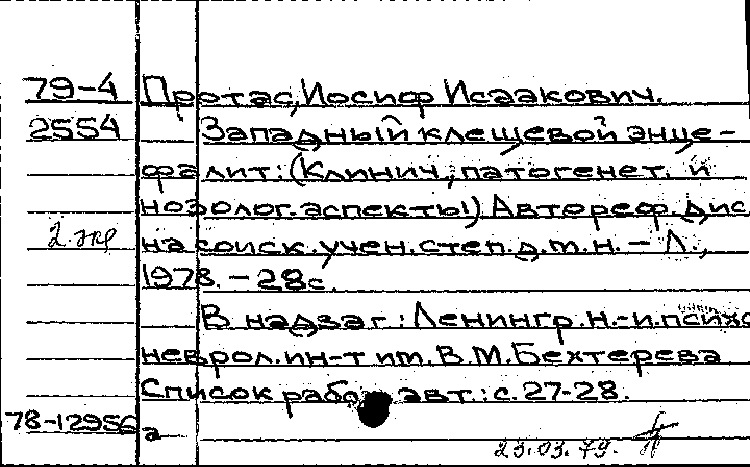 79-4 Протас, Иосиф Исаакович.
2554 Западный клещевой энце-
фалит: (Клинич., патогенет. и
нозолог. аспекты) Автореф. дис
2 экр на соиск. учен. степ. д.м.н. - Л.,
1978. - 28с.
В надзаг: Ленингр. н.-и. психо
неврол. ин-т им. В.М. Бехтерева
Список работ авт.: с. 27-28.
78-12956 а
23.03.79.